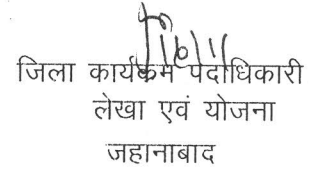 जिला कार्यक्रम पदाधिकारी
लेखा एवं योजना
जहानाबाद